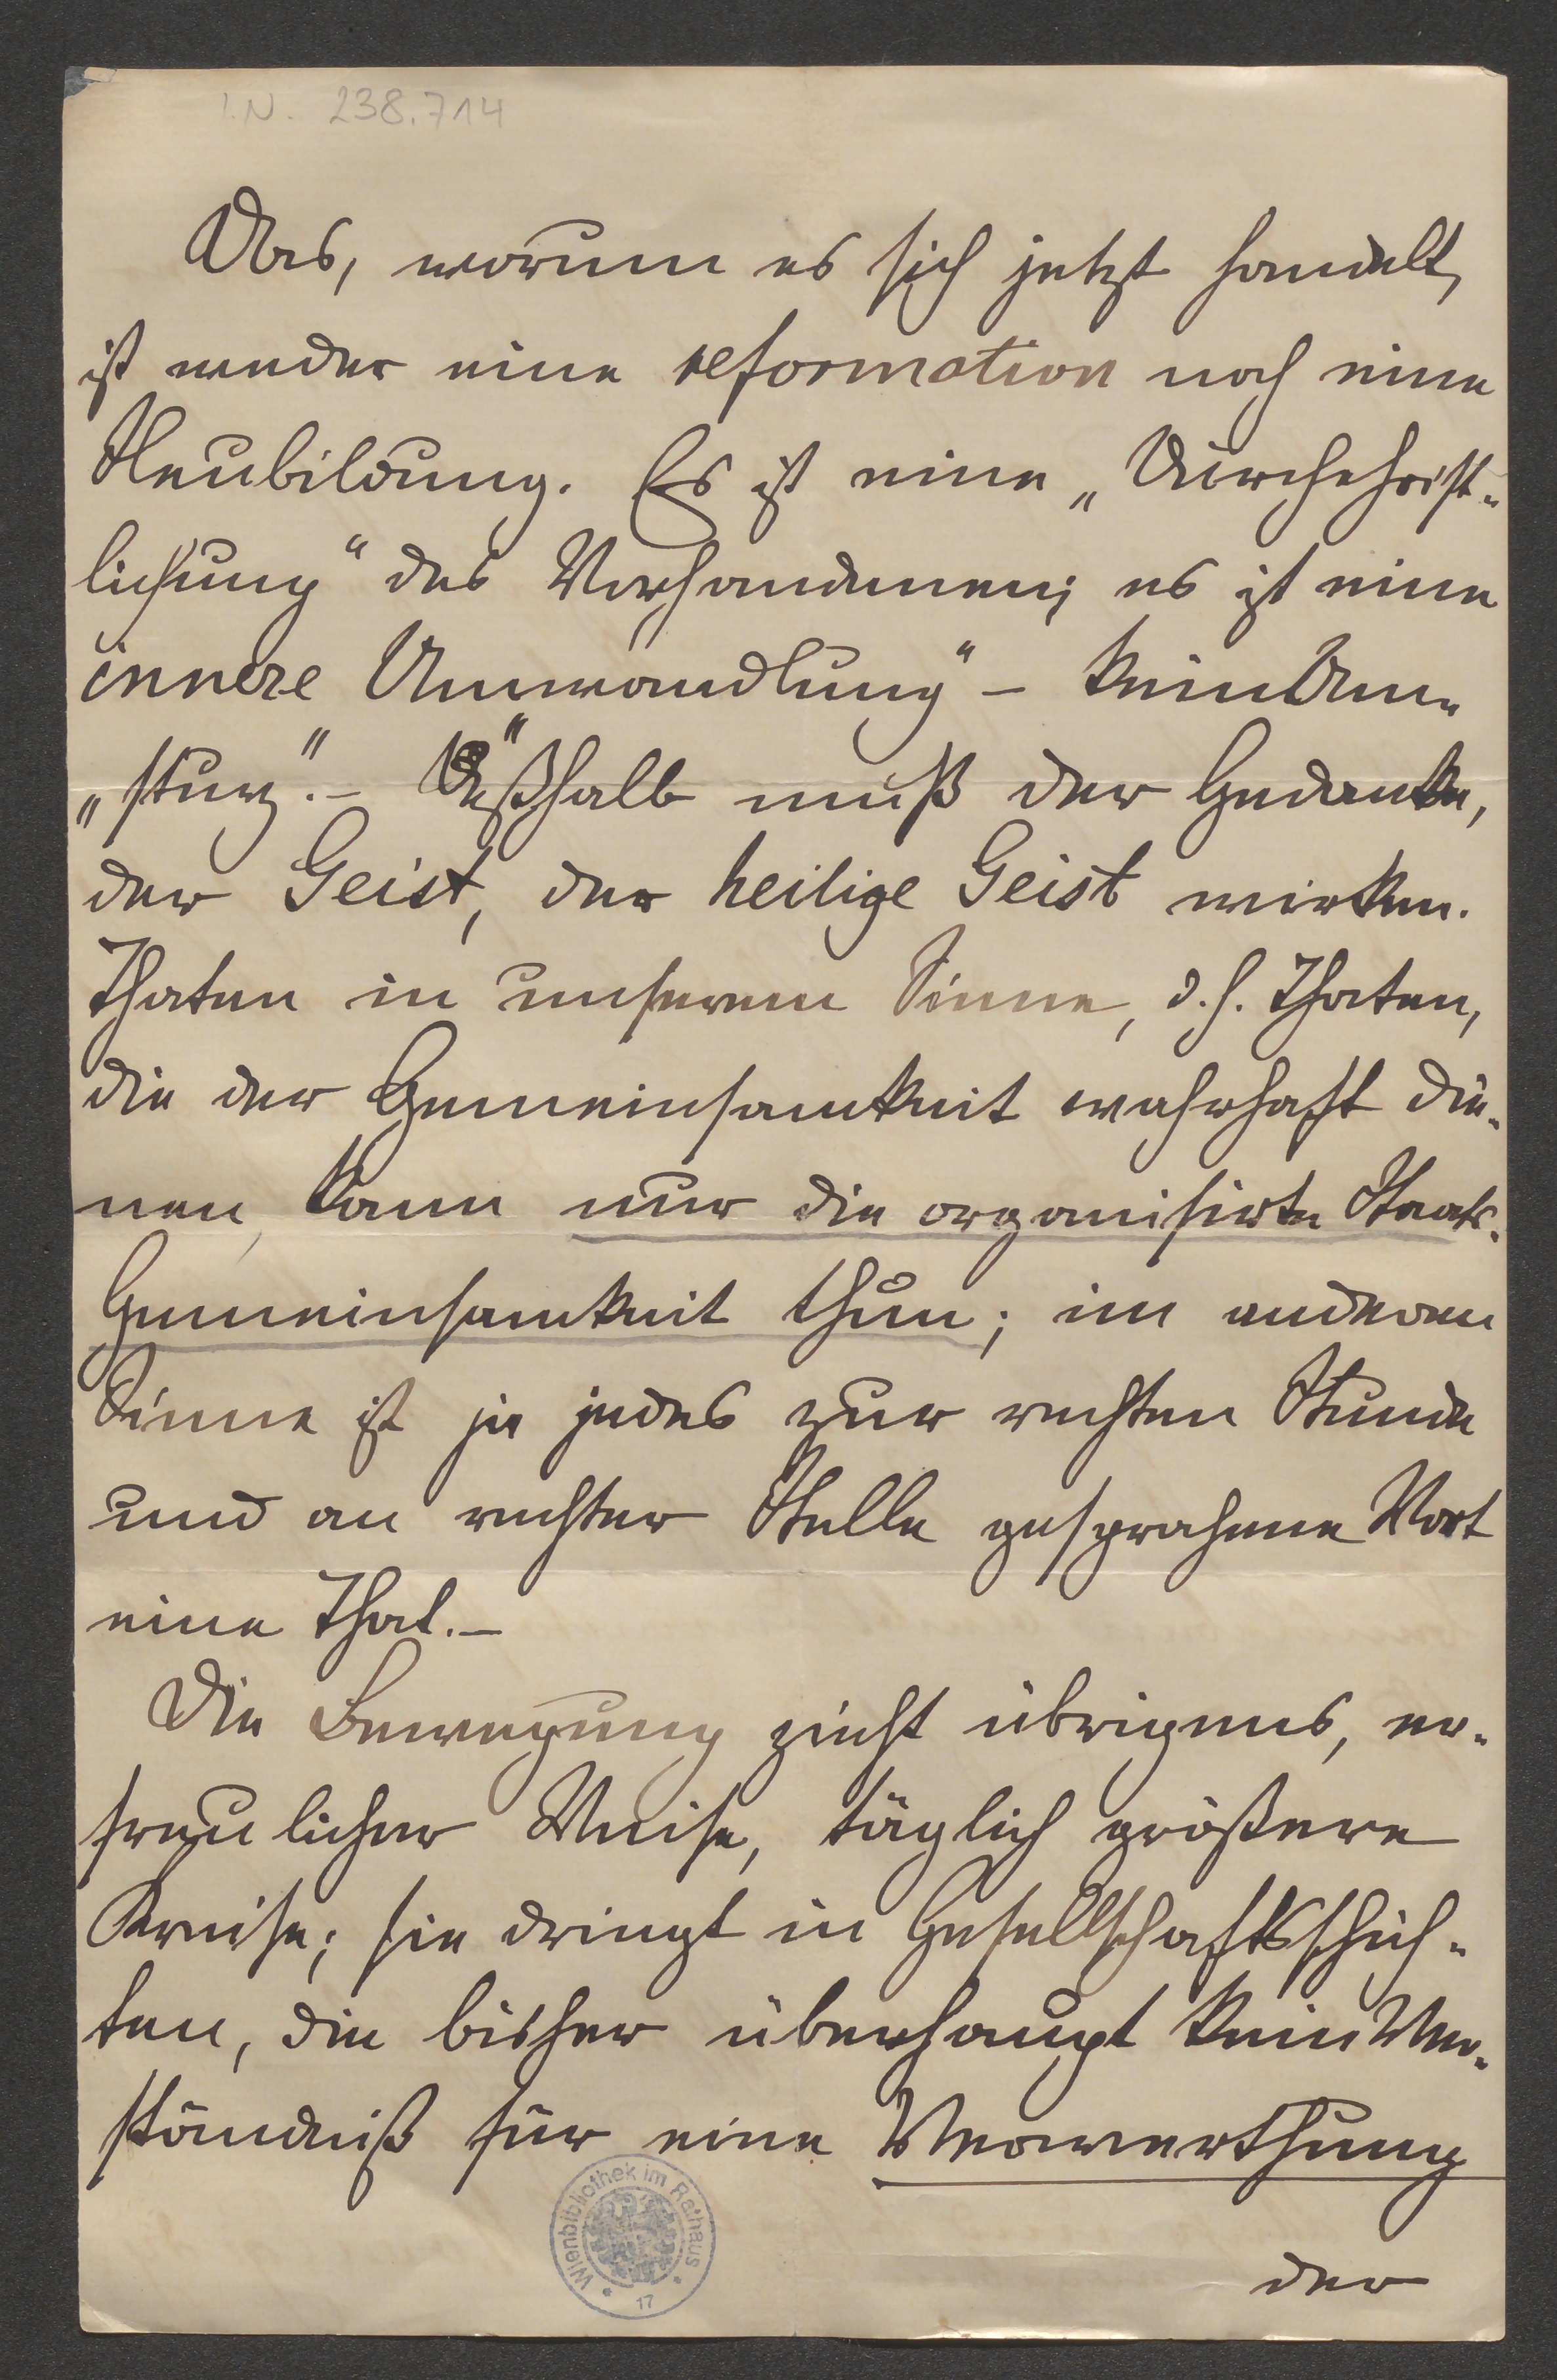 I.N. 238.714
Das, worum es sich jetzt handelt,
ist weder eine reformation noch eine
Neubildung. Es ist eine „Durchchrist-
lichung“ des Vorhandenen; es ist eine
innere Umwandlung“ – kein Um-
„sturz“. – Deßhalb muß der Gedanke,
der Geist, der heilige Geist wirken.
Thaten in unserem Sinne, d.h. Thaten,
die der Gemeinsamkeit wahrhaft die-
nen, kann nur die organisirte Staats-
Gemeinsamkeit thun; im anderen
Sinne ist ja jedes zur rechten Stunde
und an rechter Stelle gesprochene Wort
eine That. –
Die Bewegung zieht übrigens, er-
freulicher Weise, täglich größere
Kreise; sie dringt in Gesellschaftsschich-
ten, die bisher überhaupt kein Ver-
ständniß für eine Verwerthung
der
Wienbibliothek im Rathaus
17